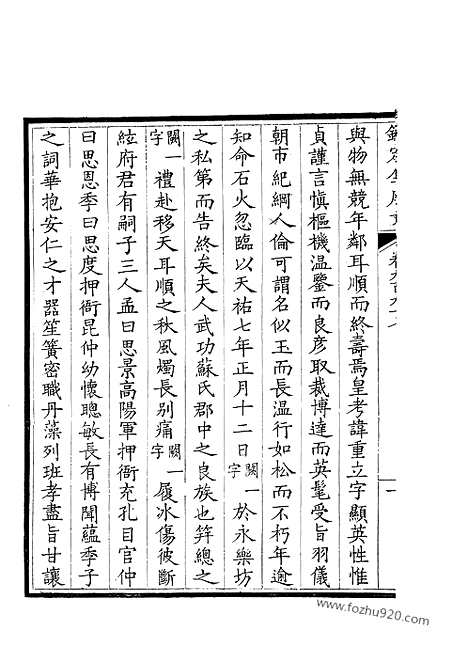 與物無競年鄰耳順而終壽焉皇考諱重立字顯英性惟
貞謹言慎樞機溫鑒而良彥取裁博達而英髦受旨羽儀
朝市紀綱人倫可謂名似玉而長溫行如松而不朽年逾
知命石火忽臨以天祐七年正月十二日闕一字於永樂坊
之私第而告終矣夫人武功蘇氏郡中之良族也笄總之
闕一字禮赴移天耳順之秋風燭長別痛闕一字履冰傷彼斷
絃府君有嗣子三人孟曰思景高陽軍押衙充孔目官仲
曰思恩季曰思度押衙昆仲幼懷聰敏長有博聞蘊季子
之詞華抱安仁之才器笙簧密職丹藻列班孝盡旨甘讓
www.fozhu920.com